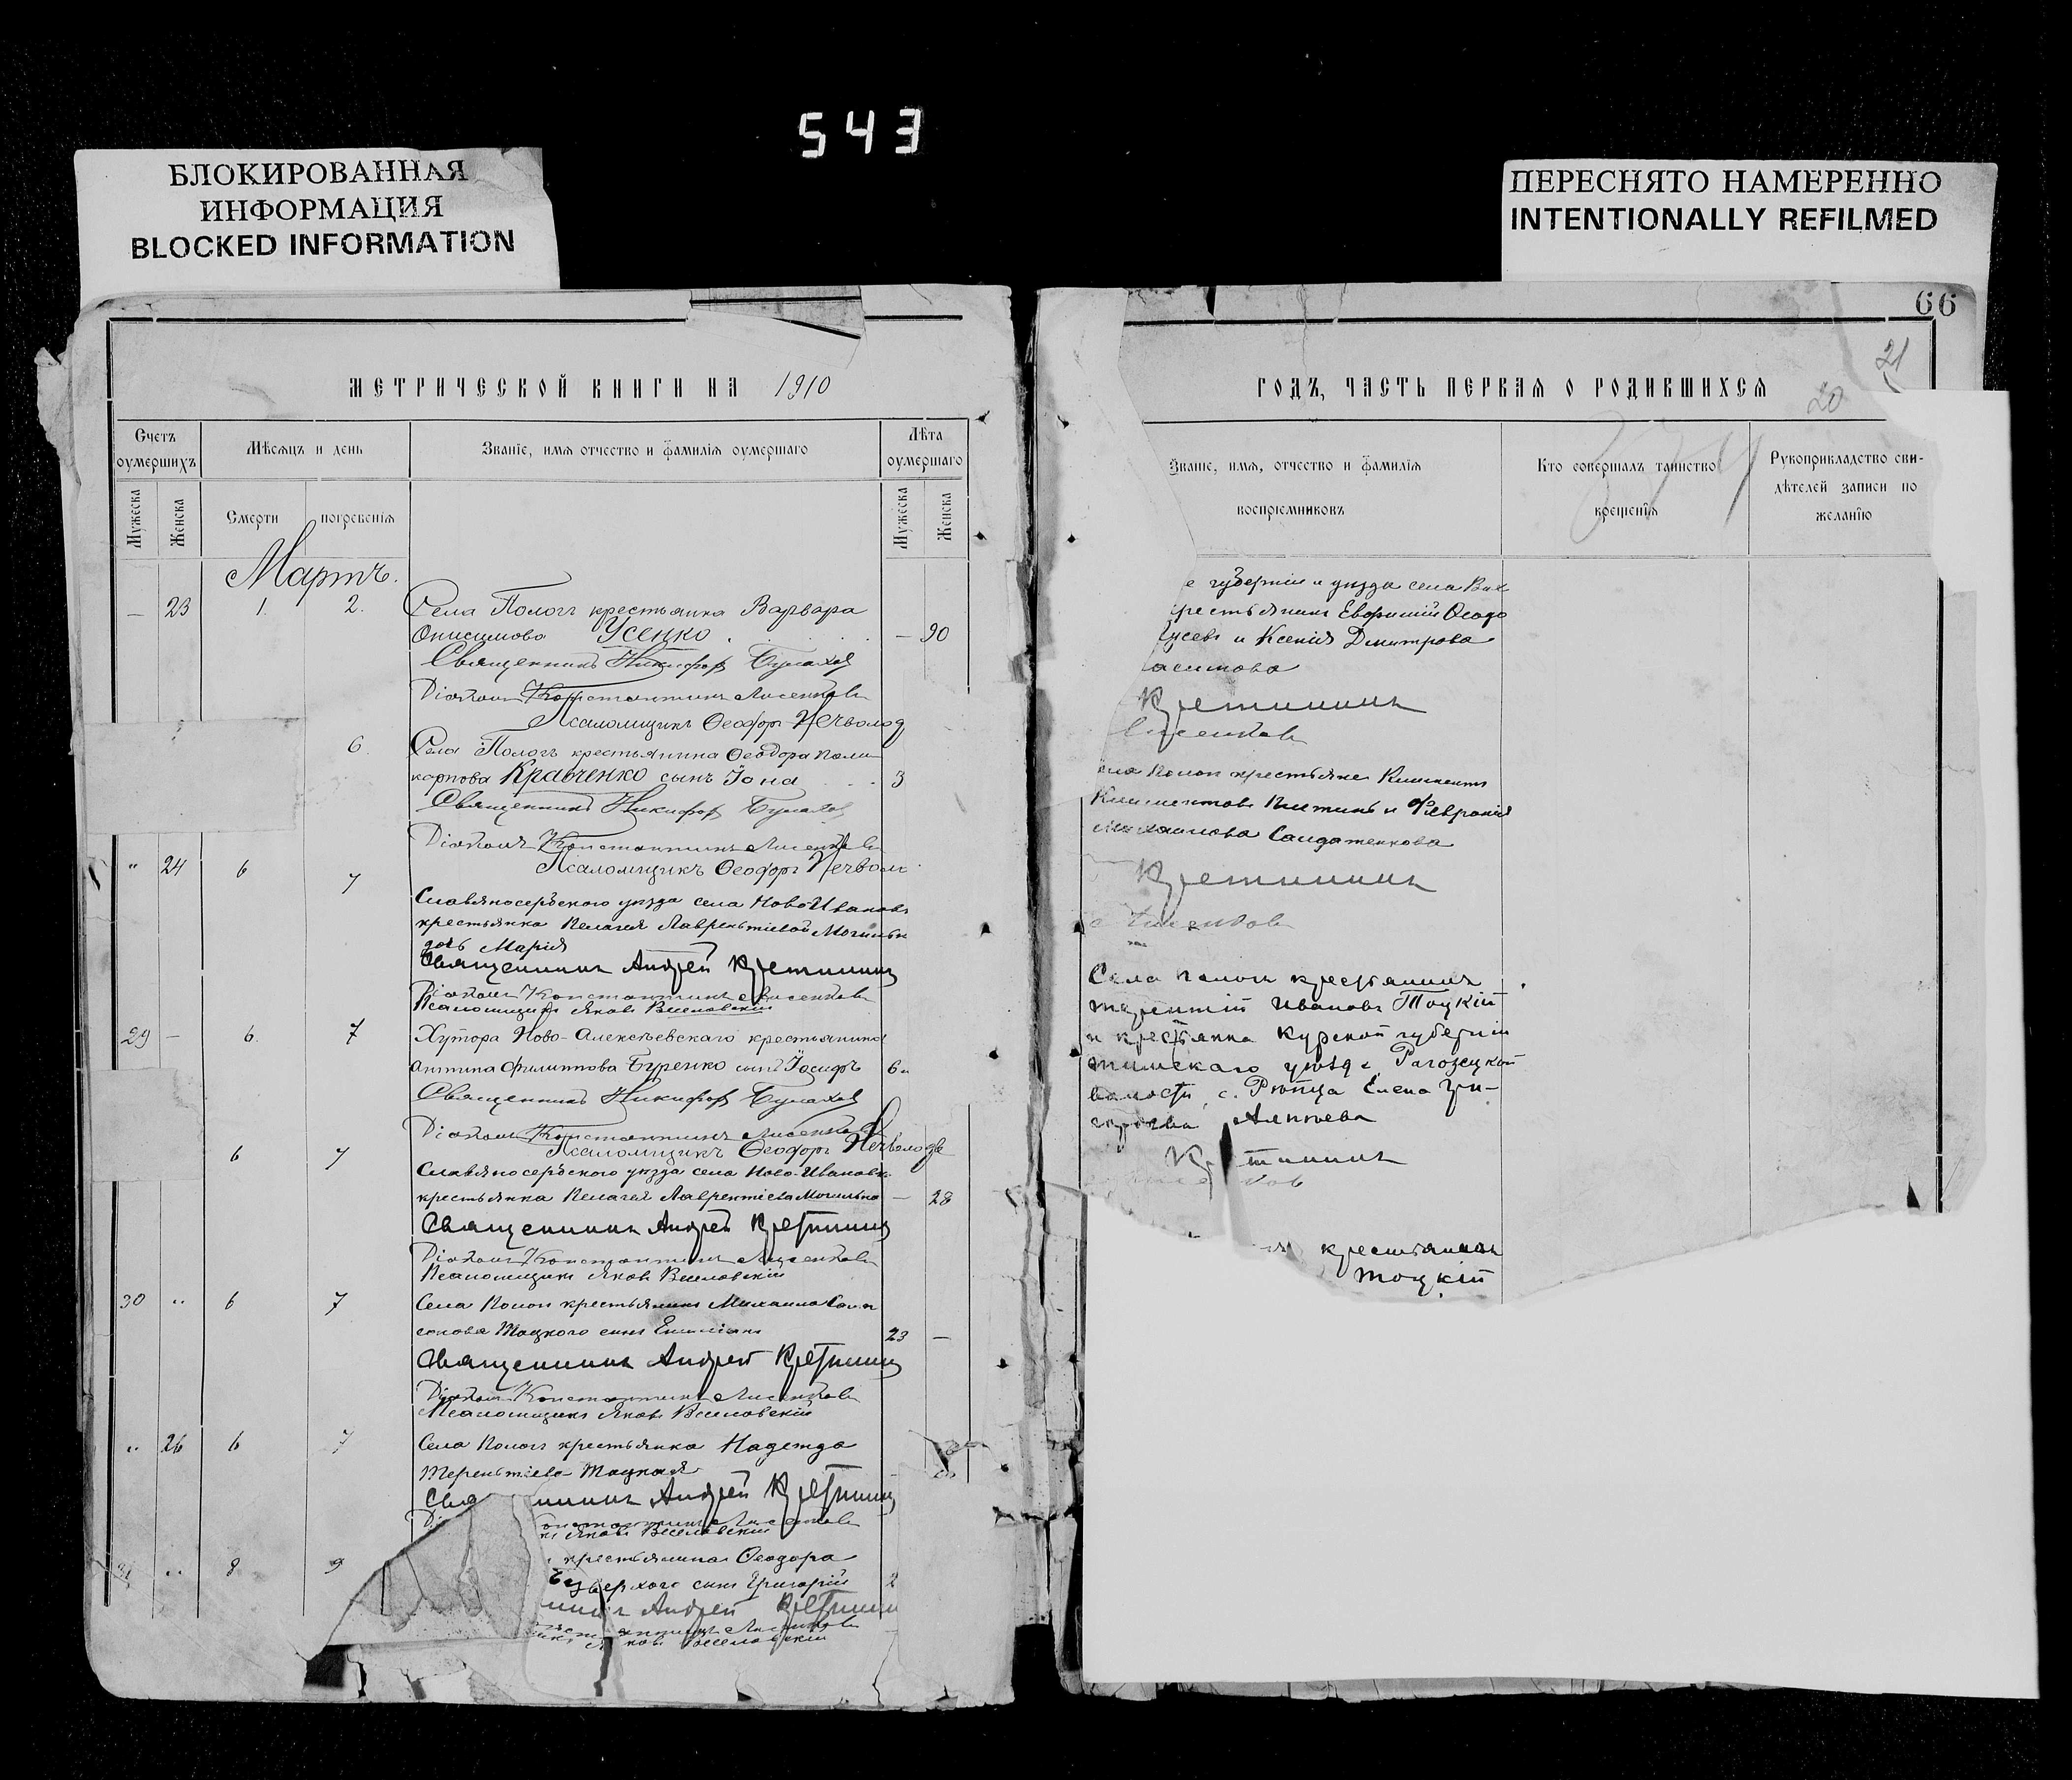 543
БЛОКИРОВАННАЯ
ИНФОРМАЦИЯ
BLOCKED INFORMATION
ПЕРЕСНЯТО НАМЕРЕННО
INTENTIONALLY REFILMED
МЕТРИЧЕСКОЙ КНИГИ НА 1910
Счетъ оумершихъ
Мѣсяцъ и день
Званіе, имя отчество и фамилія оумершаго
Лѣта оумершаго
Мужеска
Женска
Смерти
погребенія
Мужеска
Женска
Мартъ.
— 23 1. 2. Села Пологъ крестьянка Варвара
Онисимова Усенко. — 90
Священникъ Никифоръ Булахов
Діаконъ Константинъ Лисенков
Псаломщикъ Ѳеодоръ Нечволод
6. Села Пологъ крестьянина Ѳеодора Поли
карпова Кравченко сынъ Іона 3
Священникъ Никифоръ Булахов
Діаконъ Константинъ Лисенков
Псаломщикъ Ѳеодоръ Нечволо
" 24 6 7
Славяносербскаго уѣзда села Ново Ивановк
крестьянка Пелагея Лаврентіевой Могильн
дочь Марія
Священникъ Андрей Кретининъ
Діаконъ Константинъ Лисенковъ
Псаломщикъ Яковъ Веселовскій
29 — 6. 7 Хутора Ново-Алексѣевскаго крестьянина
Антипа Филиппова Буренко сынъ Іосифъ 6
Священникъ Никифоръ Булахов
Діаконъ Константинъ Лисенков
Псаломщикъ Ѳеодоръ Нечволодъ
6 7
Славяносербскаго уѣзда села Ново-Ивановк
крестьянка Пелагея Лаврентіева Могильна — 28
Священникъ Андрей Кретининъ
Діаконъ Константинъ Лисенковъ
Псаломщикъ Яковъ Веселовскій
30 " 6 7 Села Пологъ крестьянина Михаила Сам
сонова Тоцкого сынъ Емиліанъ 23 —
Священникъ Андрей Кретининъ
Діаконъ Константинъ Лисенковъ
Псаломщикъ Яковъ Веселовскій
" 26 6 7 Села Пологъ крестьянка Надежда
Терентіева Тоцкая
Свя нникъ Андрей Кретининъ
Ді онстантинъ Лисенковъ
къ Яковъ Веселовскій
31 " 8 9 крестьянина Ѳеодора
Безверхого сынъ Григорій 2
нникъ Андрей Кретинин
нстантинъ Лисенковъ
Яковъ Веселовскій
66
21
20
ГОДЪ, ЧАСТЬ ПЕРВАЯ О РОДИВШИХСЯ
Званіе, имя, отчество и фамилія
воспріемниковъ
Кто совершалъ таинство
крещенія
Рукоприкладство сви-
дѣтелей записи по
желанію
е губерніи и уѣзда села
рестьянинъ Евфимій Ѳеодо
Гусевъ и Ксенія Дмитрова
асимова
Кретининъ
Лисенков
ела Пологъ крестьяне Климентъ
Климентовъ и Феврония
Михаилова Солдатенкова
Кретининъ
Лисенков
Села Пологъ крестьянинъ
Терентій Ивановъ Тоцкій
и крестьянка Курской губерніи
Тимскаго уѣзда Рагозецкой
волости, с. Елена Гри-
горьева
Кр тининъ
ков
крестьянинъ
Тоцкій